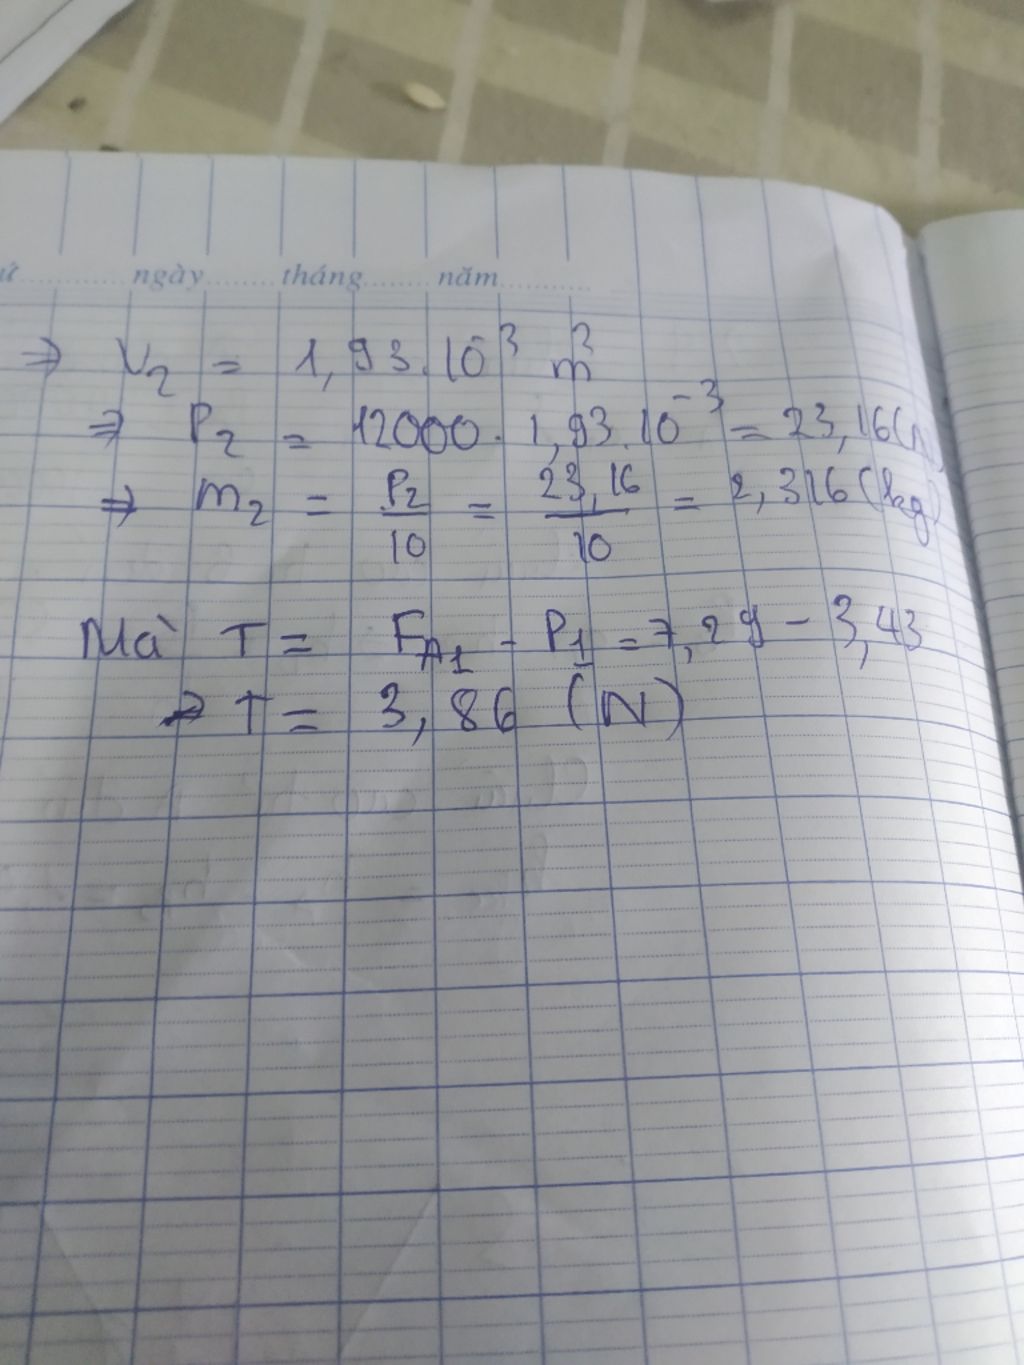 ngày........tháng.......năm..........
⇒ V₂ = 1,93.10⁻³ m³
⇒ P₂ = 12000. 1,93.10⁻³ = 23,16(N)
⇒ m₂ = P₂/10 = 23,16/10 = 2,316 (kg)
Mà T = F_A₁ - P₁ = 7,29 - 3,43
⇒ T = 3,86 (N)